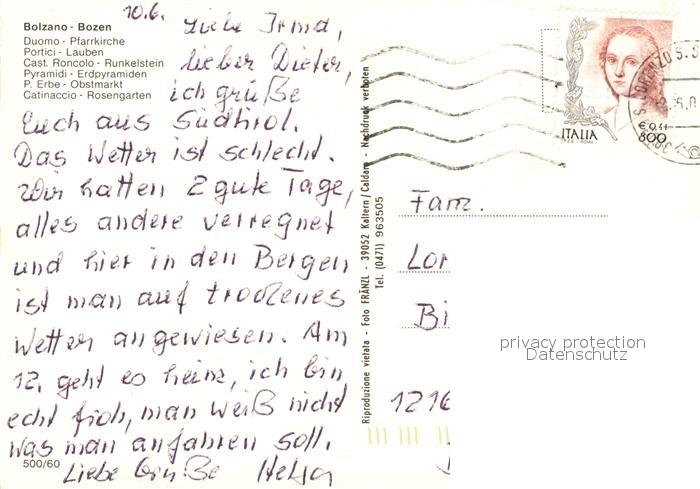 Bolzano - Bozen
Duomo - Pfarrkirche
Portici - Lauben
Cast. Roncolo - Runkelstein
Pyramidi - Erdpyramiden
P. Erbe - Obstmarkt
Catinaccio - Rosengarten
10.6.
Liebe Irma,
lieber Dieter,
ich grüße
Euch aus Südtirol.
Das Wetter ist schlecht.
Wir hatten 2 gute Tage,
alles andere verregnet
und hier in den Bergen
ist man auf trockenes
Wetter angewiesen. Am
12. geht es heim, ich bin
echt froh, man weiß nicht
was man anfahren soll.
Liebe Grüße
500/60
Riproduzione vietata - Foto FRÄNZL - 39052 Kaltern / Caldaro - Nachdruck verboten
Tel. (0471) 963505
ITALIA
€ 0,41
800
Fam.
Lor
Bi
1216
privacy protection
Datenschutz